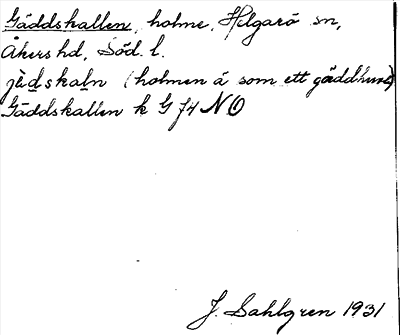 Gäddskallen, holme, Helgarö sn,
Åkers hd, Söd. l.
jädskaln (holmen ä som ett gäddhuvud)
Gäddskallen k G J4 NO
J. Sahlgren 1931